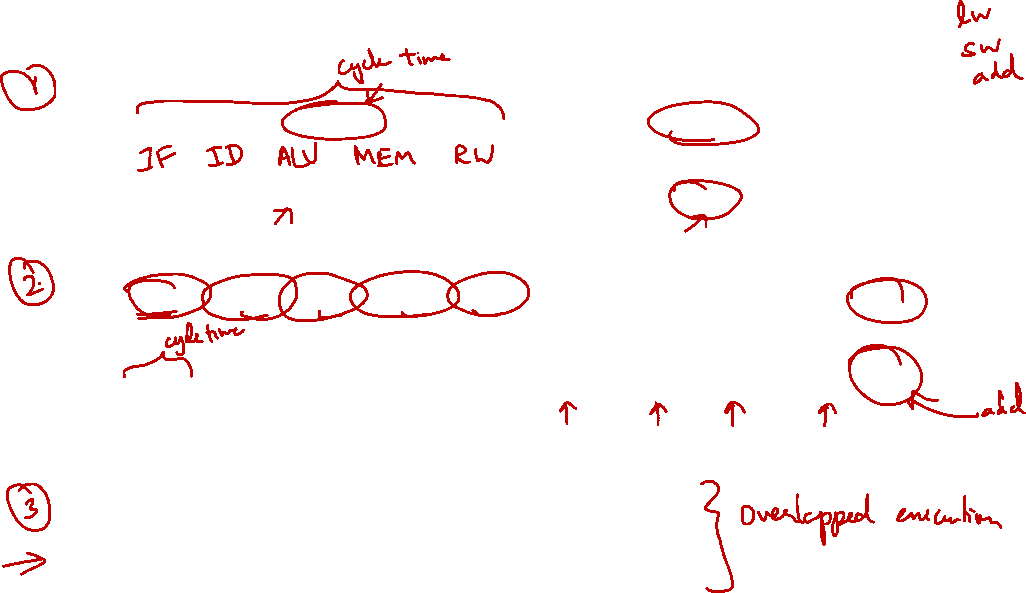 lw
sw
add
1
cycle time
IF ID ALU MEM RW
2.
cycle time
add
3
Overlapped execution